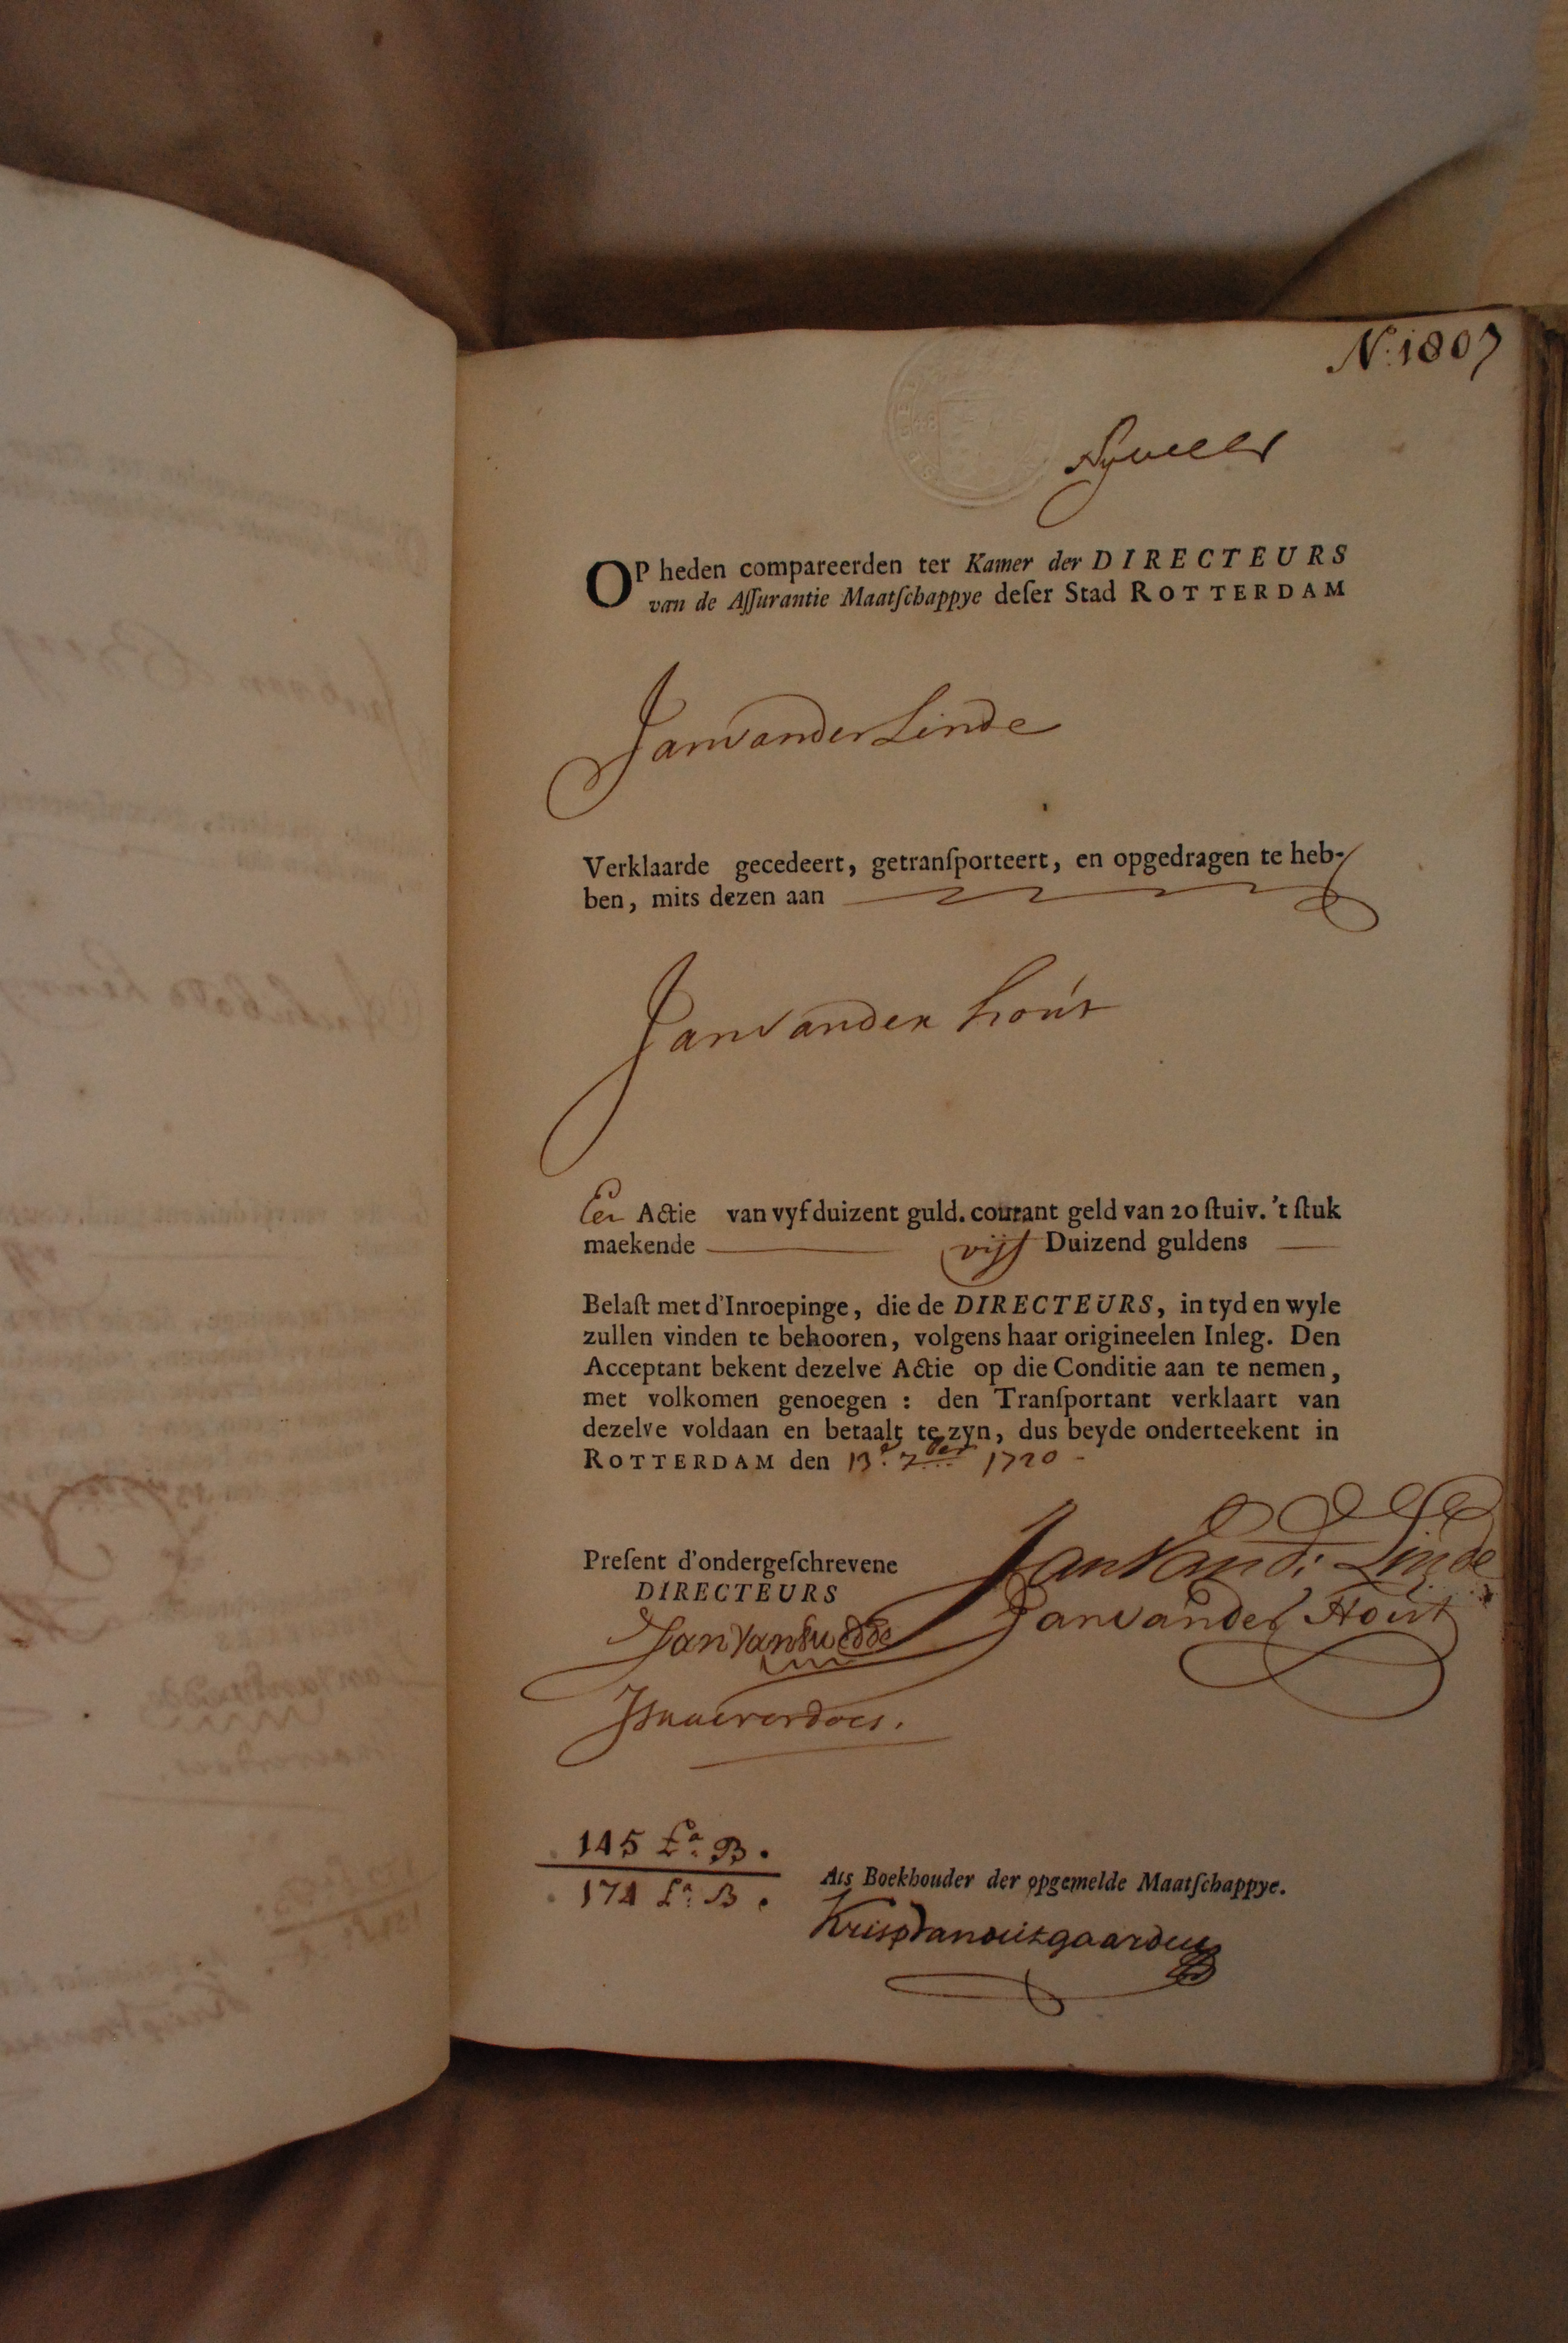 N.º 1807
OP heden compareerden ter Kamer der DIRECTEURS
van de Aſſurantie Maatſchappye deſer Stad ROTTERDAM
Jan van der Linde
Verklaarde gecedeert, getranſporteert, en opgedragen te heb-
ben, mits dezen aan
Jan van der Hout
Een Actie van vyf duizent guld. courant geld van 20 ſtuiv. 't ſtuk
maekende vijf Duizend guldens
Belaſt met d'Inroepinge, die de DIRECTEURS, in tyd en wyle
zullen vinden te behooren, volgens haar origineelen Inleg. Den
Acceptant bekent dezelve Actie op die Conditie aan te nemen,
met volkomen genoegen : den Tranſportant verklaart van
dezelve voldaan en betaalt te zyn, dus beyde onderteekent in
ROTTERDAM den 13.e 7ber 1720
Jan Van d. Linde
Preſent d'ondergeſchrevene
DIRECTEURS
Jan van der Hout
145 Lª B.
174 Lª B.
Als Boekhouder der opgemelde Maatſchappye.